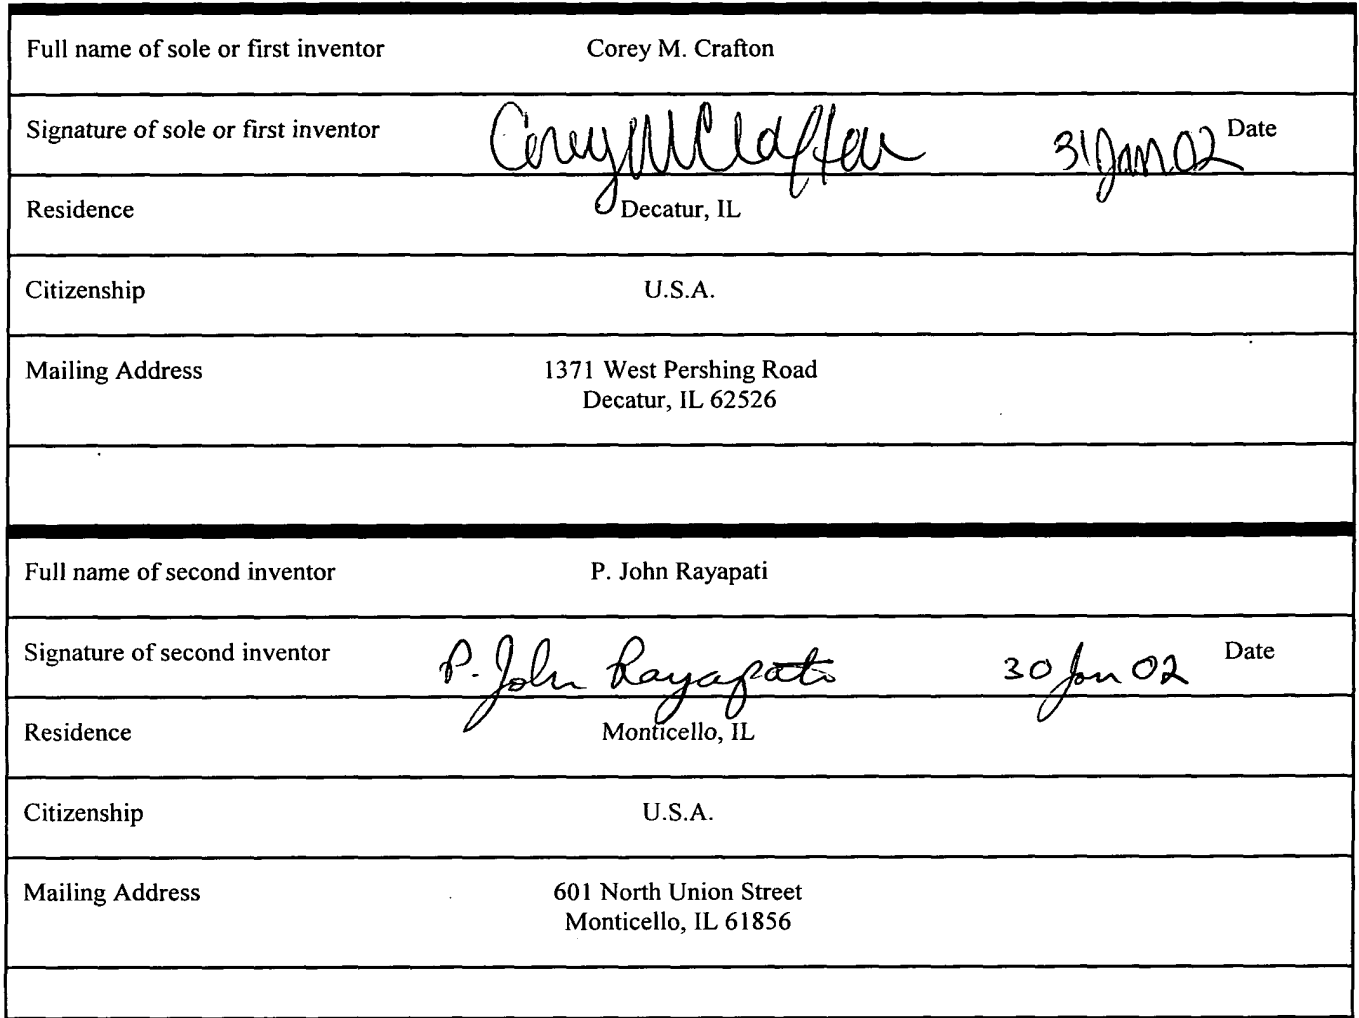 Full name of sole or first inventor Corey M. Crafton
Signature of sole or first inventor Corey M Crafton 31 Jan 02 Date
Residence Decatur, IL
Citizenship U.S.A.
Mailing Address 1371 West Pershing Road
Decatur, IL 62526
Full name of second inventor P. John Rayapati
Signature of second inventor P. John Rayapati 30 Jan 02 Date
Residence Monticello, IL
Citizenship U.S.A.
Mailing Address 601 North Union Street
Monticello, IL 61856